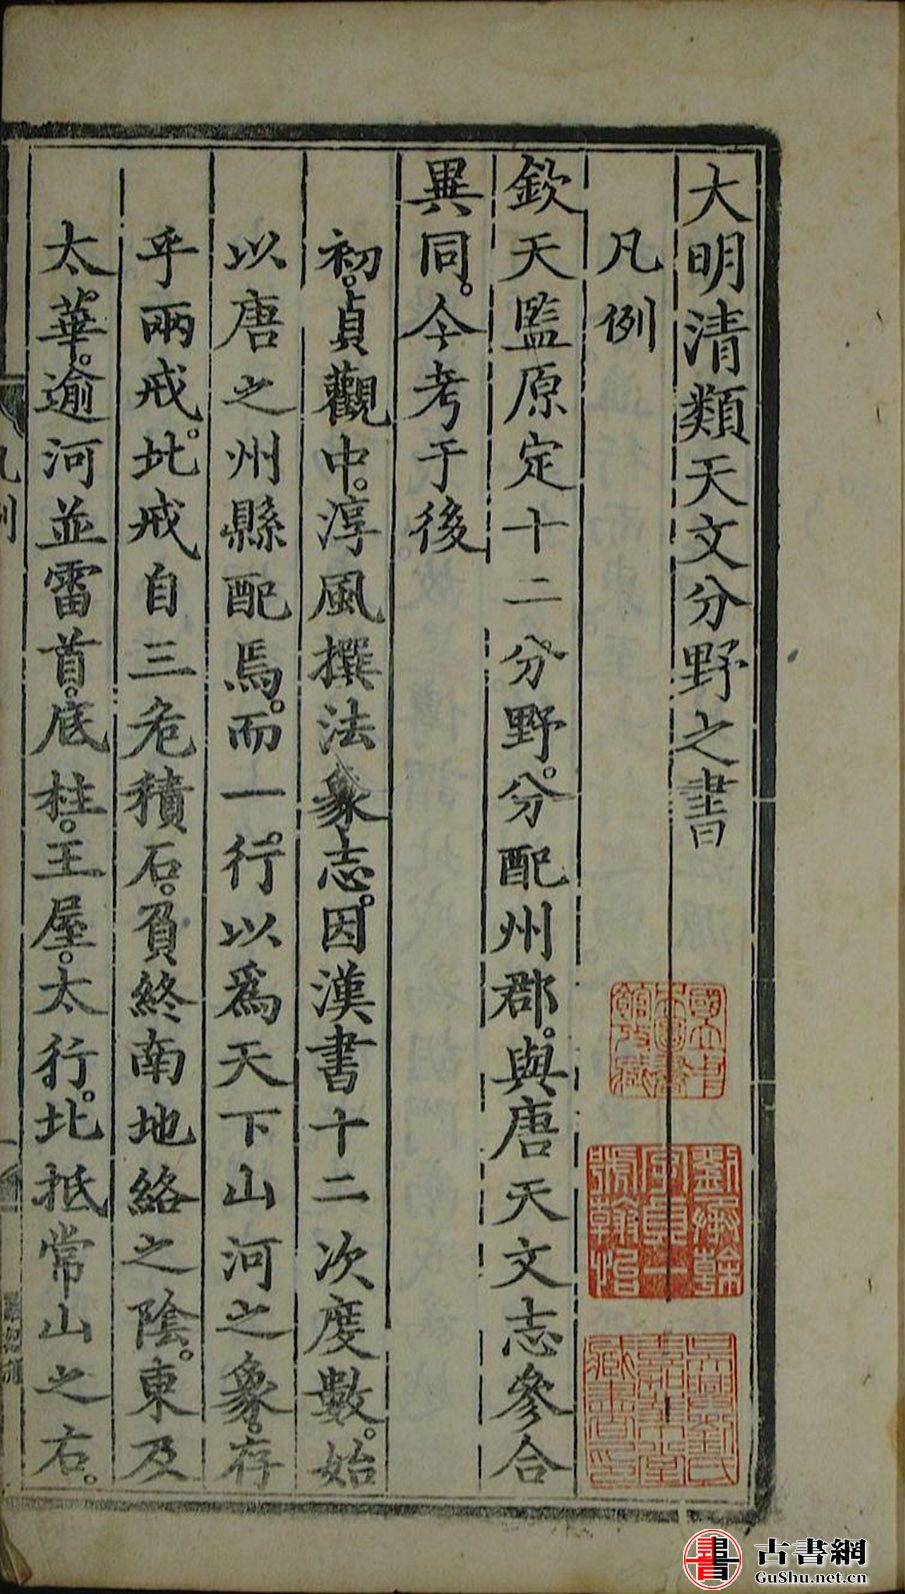 大明清類天文分野之書
凡例
欽天監原定十二分野。分配州郡。與唐天文志參合
異同。今考于後
初。貞觀中。淳風撰法象志。因漢書十二次度數。始
以唐之州縣配焉。而一行以爲天下山河之象。存
乎兩戒。北戒自三危積石。負終南地絡之陰。東及
太華。逾河並雷首。底柱。王屋。太行。北抵常山之右。
凡例
國立中
央圖書
館收藏
劉承幹
字貞一
號翰怡
吳興劉氏
嘉業堂
藏書印
書
古書網
GuShu.net.cn